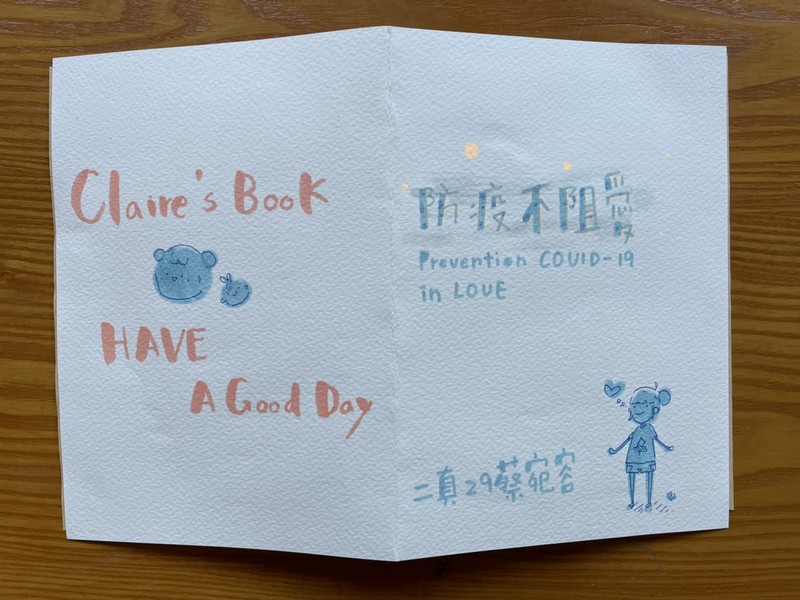 Claire's Book
HAVE
A Good Day
防疫不阻愛
Prevention COVID-19
in LOVE
二真29蔡宛容